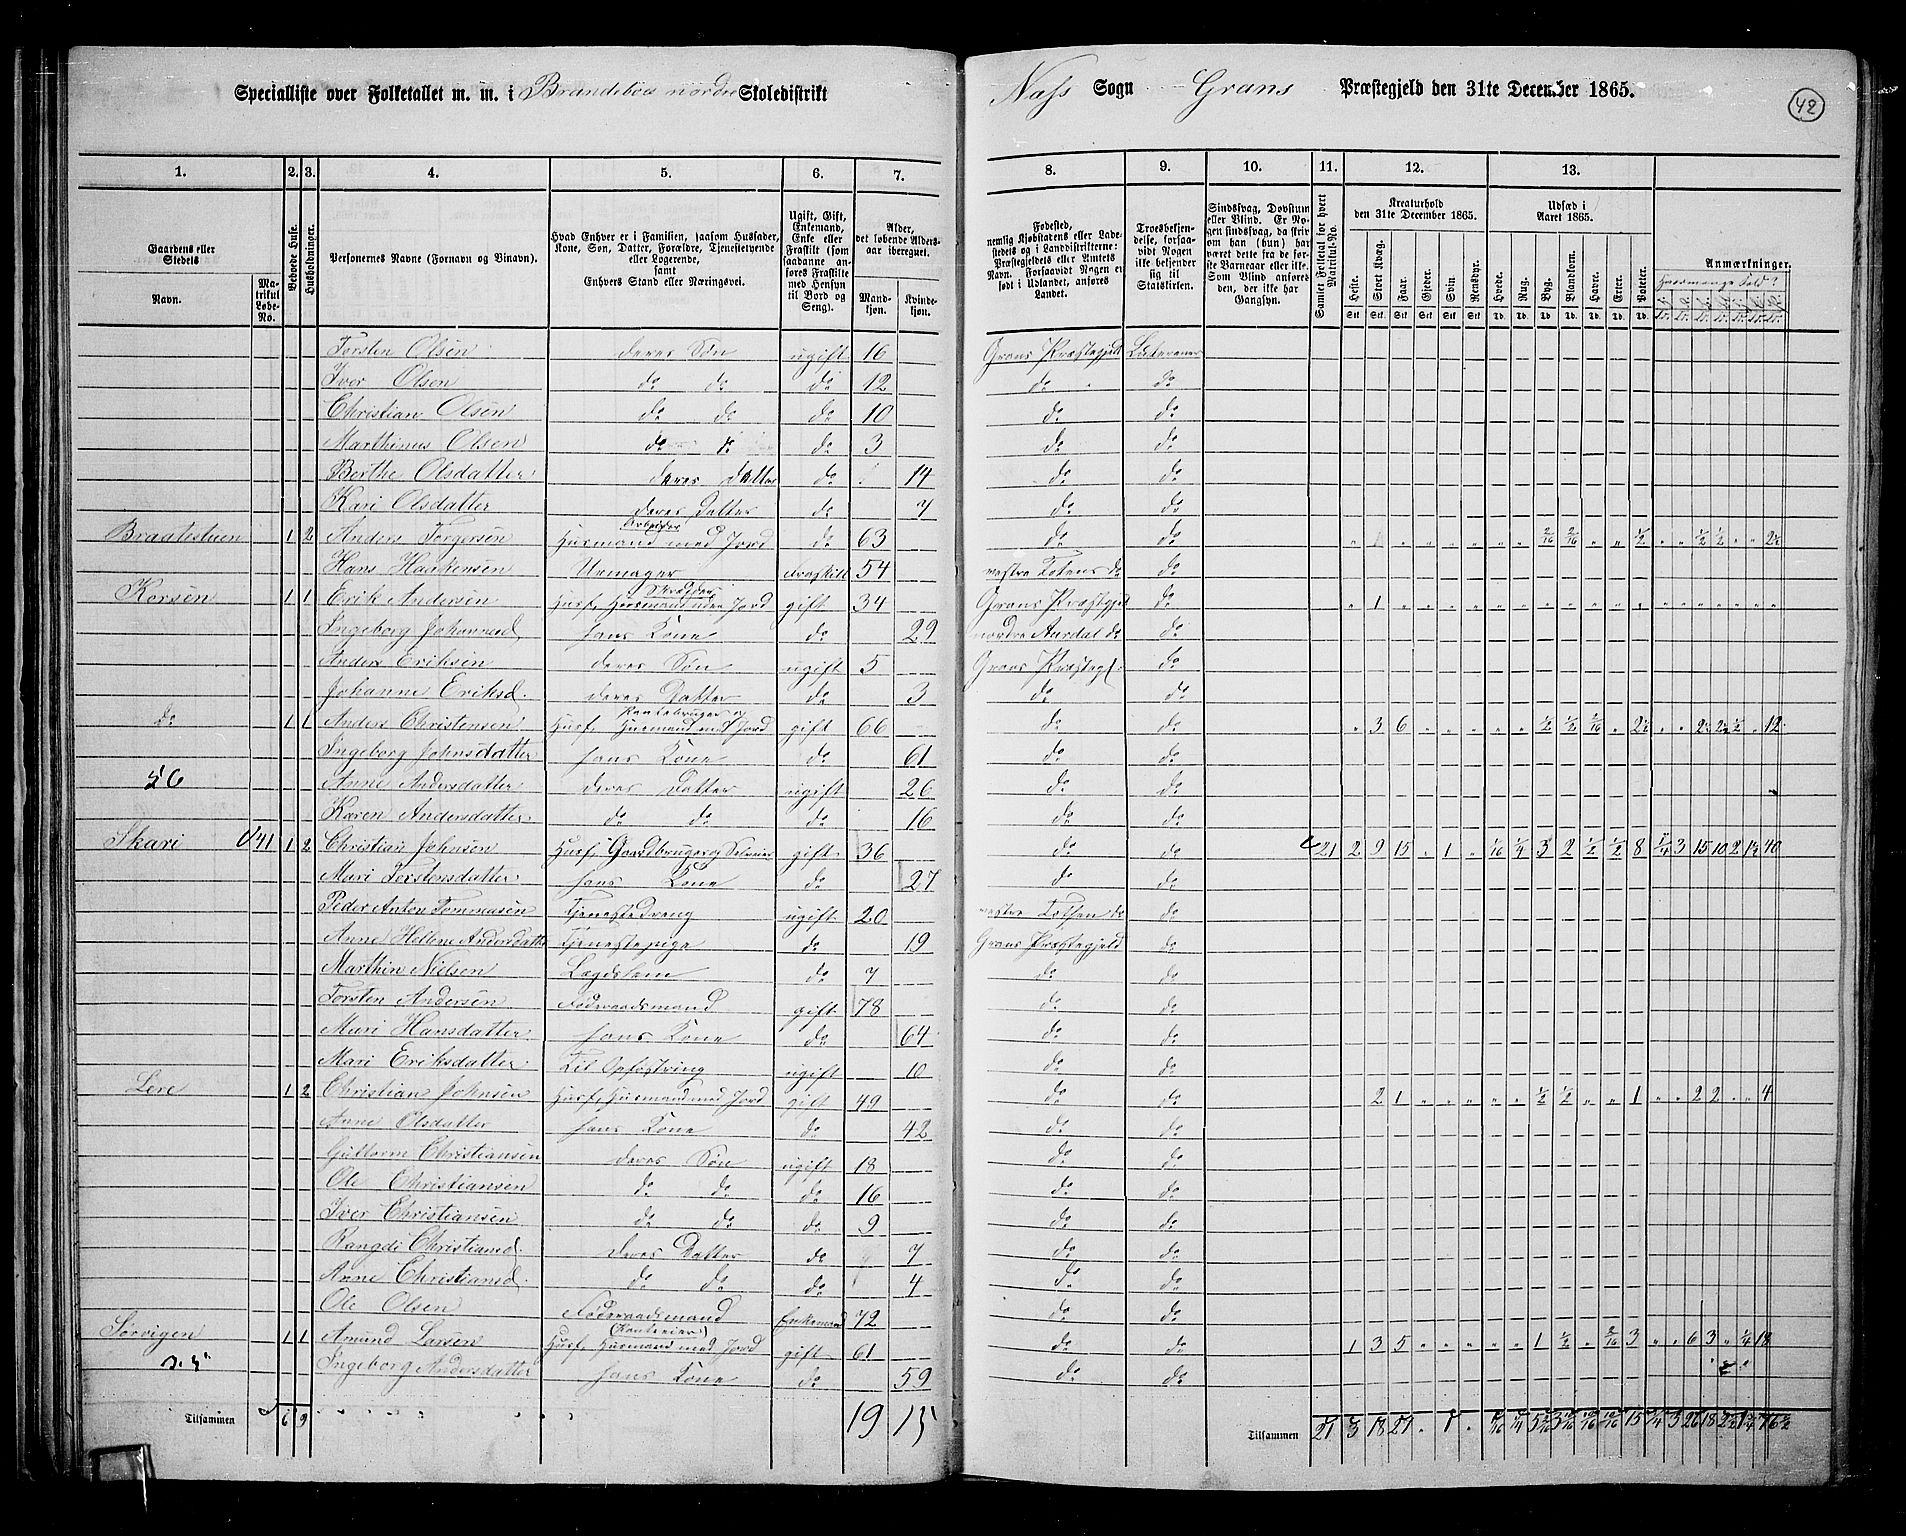 Specialliste over Folketallet m. m. i Brandeboe nordre Skoledistrikt
Næss Sogn Grans Præstegjeld den 31te December 1865.
42
1. 2. 3. 4. 5. 6. 7. 8. 9. 10. 11. 12. 13.
Gaardens eller Stedets
Navn.
Matrikul Løbe-No.
Beboede Huse.
Husholdninger.
Personernes Navne (Fornavn og Tilnavn).
Hvad Enhver er i Familien, saasom Husfader, Kone, Søn, Datter, Forældre, Tjenestetyende eller Logerende, samt Enhvers Stand eller Næringsvei.
Ugift, Gift, Enkemand, Enke eller Fraskilt (som saadanne anføres Fraskilte med Hensyn til Bord og Seng).
Alder, det løbende Alders-aar iberegnet.
Mandkjøn. Kvindekjøn.
Fødested, nemlig Kjøbstadens eller Ladestedets og i Landdistrikterne: Præstegjeldets eller Amtets Navn. Forsaavidt Nogen er født i Udlandet, anføres Landet.
Troesbekjendelse, forsaavidt Nogen ikke bekjender sig til Statskirken.
Sindssvag, Døvstum eller Blind. Er Nogen sindssvag, da skrives om han (hun) har været dette fra de første Barneaar eller ikke. Som Blind anføres den, der ikke har Gangsyn.
Samlet Folketal for hvert Matrikul-No.
Kreaturhold den 31te December 1865.
Heste. Stort Kvæg. Faar. Gjeder. Svin. Rensdyr.
Udsæd i Aaret 1865.
Hvede. Rug. Byg. Blandkorn. Havre. Erter. Poteter.
Anmærkninger.
Torsten Olsen deres Søn ugift 16 Grans Præstegjeld Lutheraner
Iver Olsen do do do 12 do do
Christian Olsen do do do 10 do do
Marthinus Olsen do do do 3 do do
Berthe Olsdatter deres Datter do 14 do do
Kari Olsdatter deres Datter do 7 do do
Braatestuen 1 2 Anders Torgersen Arbeider Husmand med Jord do 63 do do
Hans Haakensen Urmager fraskilt 54 vestre Totens do do
Korsen 1 1 Erik Andersen Husf, Husmand uden Jord Skrædder gift 34 Grans Præstegjeld do 1
Ingeborg Johannesd. hans Kone do 29 nordre Aurdal do do
Anders Eriksen deres Søn ugift 5 Grans Præstegj. do
Johanne Eriksd. deres Datter do 3 do do
do 1 1 Anders Christensen Husf, Husmand med Jord gift 66 do do 3 6 ½ ½ 12
Ingeborg Johnsdatter hans Kone do 61 do do
56 Anne Andersdatter deres Datter ugift 26 do do
Karen Andersdatter do do do 16 do do
Skari 41 1 2 Christian Johnsen Husf, Gaardbruger Selveier gift 36 do do 21 2 9 15 1 ¼ 3 2 ½ ½ 8 ¼ 3 15 10 2 40
Mari Torstensdatter hans Kone do 27 do do
Peder Anton Tommasen Tjenestedreng ugift 20 vestre Totsen do do
Anne Hellene Andersdatter Tjenestepige do 19 Grans Præstegjeld do
Marthin Nielsen Lægdslem do 7 do do
Torsten Andersen Føderaadsmand gift 78 do do
Mari Hansdatter hans Kone do 64 do do
Mari Eriksdatter Til Opfostring ugift 10 do do
Lere 1 2 Christian Johnsen Husf, Husmand med Jord gift 49 do do 2 1 ½ ½ 1 2 2 4
Anne Olsdatter hans Kone do 42 do do
Guttorm Christiansen deres Søn ugift 18 do do
Ole Christiansen do do do 16 do do
Iver Christiansen do do do 9 do do
Rangdi Christiansd. deres Datter do 7 do do
Anne Christiansd. do do do 4 do do
Ole Olsen Føderaadsmand Enkemand 72 do do
Sørvigen 1 1 Amund Larsen Husf, Husmand med Jord gift 61 do do 1 3 5 1 ½ 3 6 3 ¼ 18
Ingeborg Andersdatter hans Kone do 59 do do
Tilsammen 6 9 19 15
Tilsammen 21 3 18 27 1 15 3 26 18